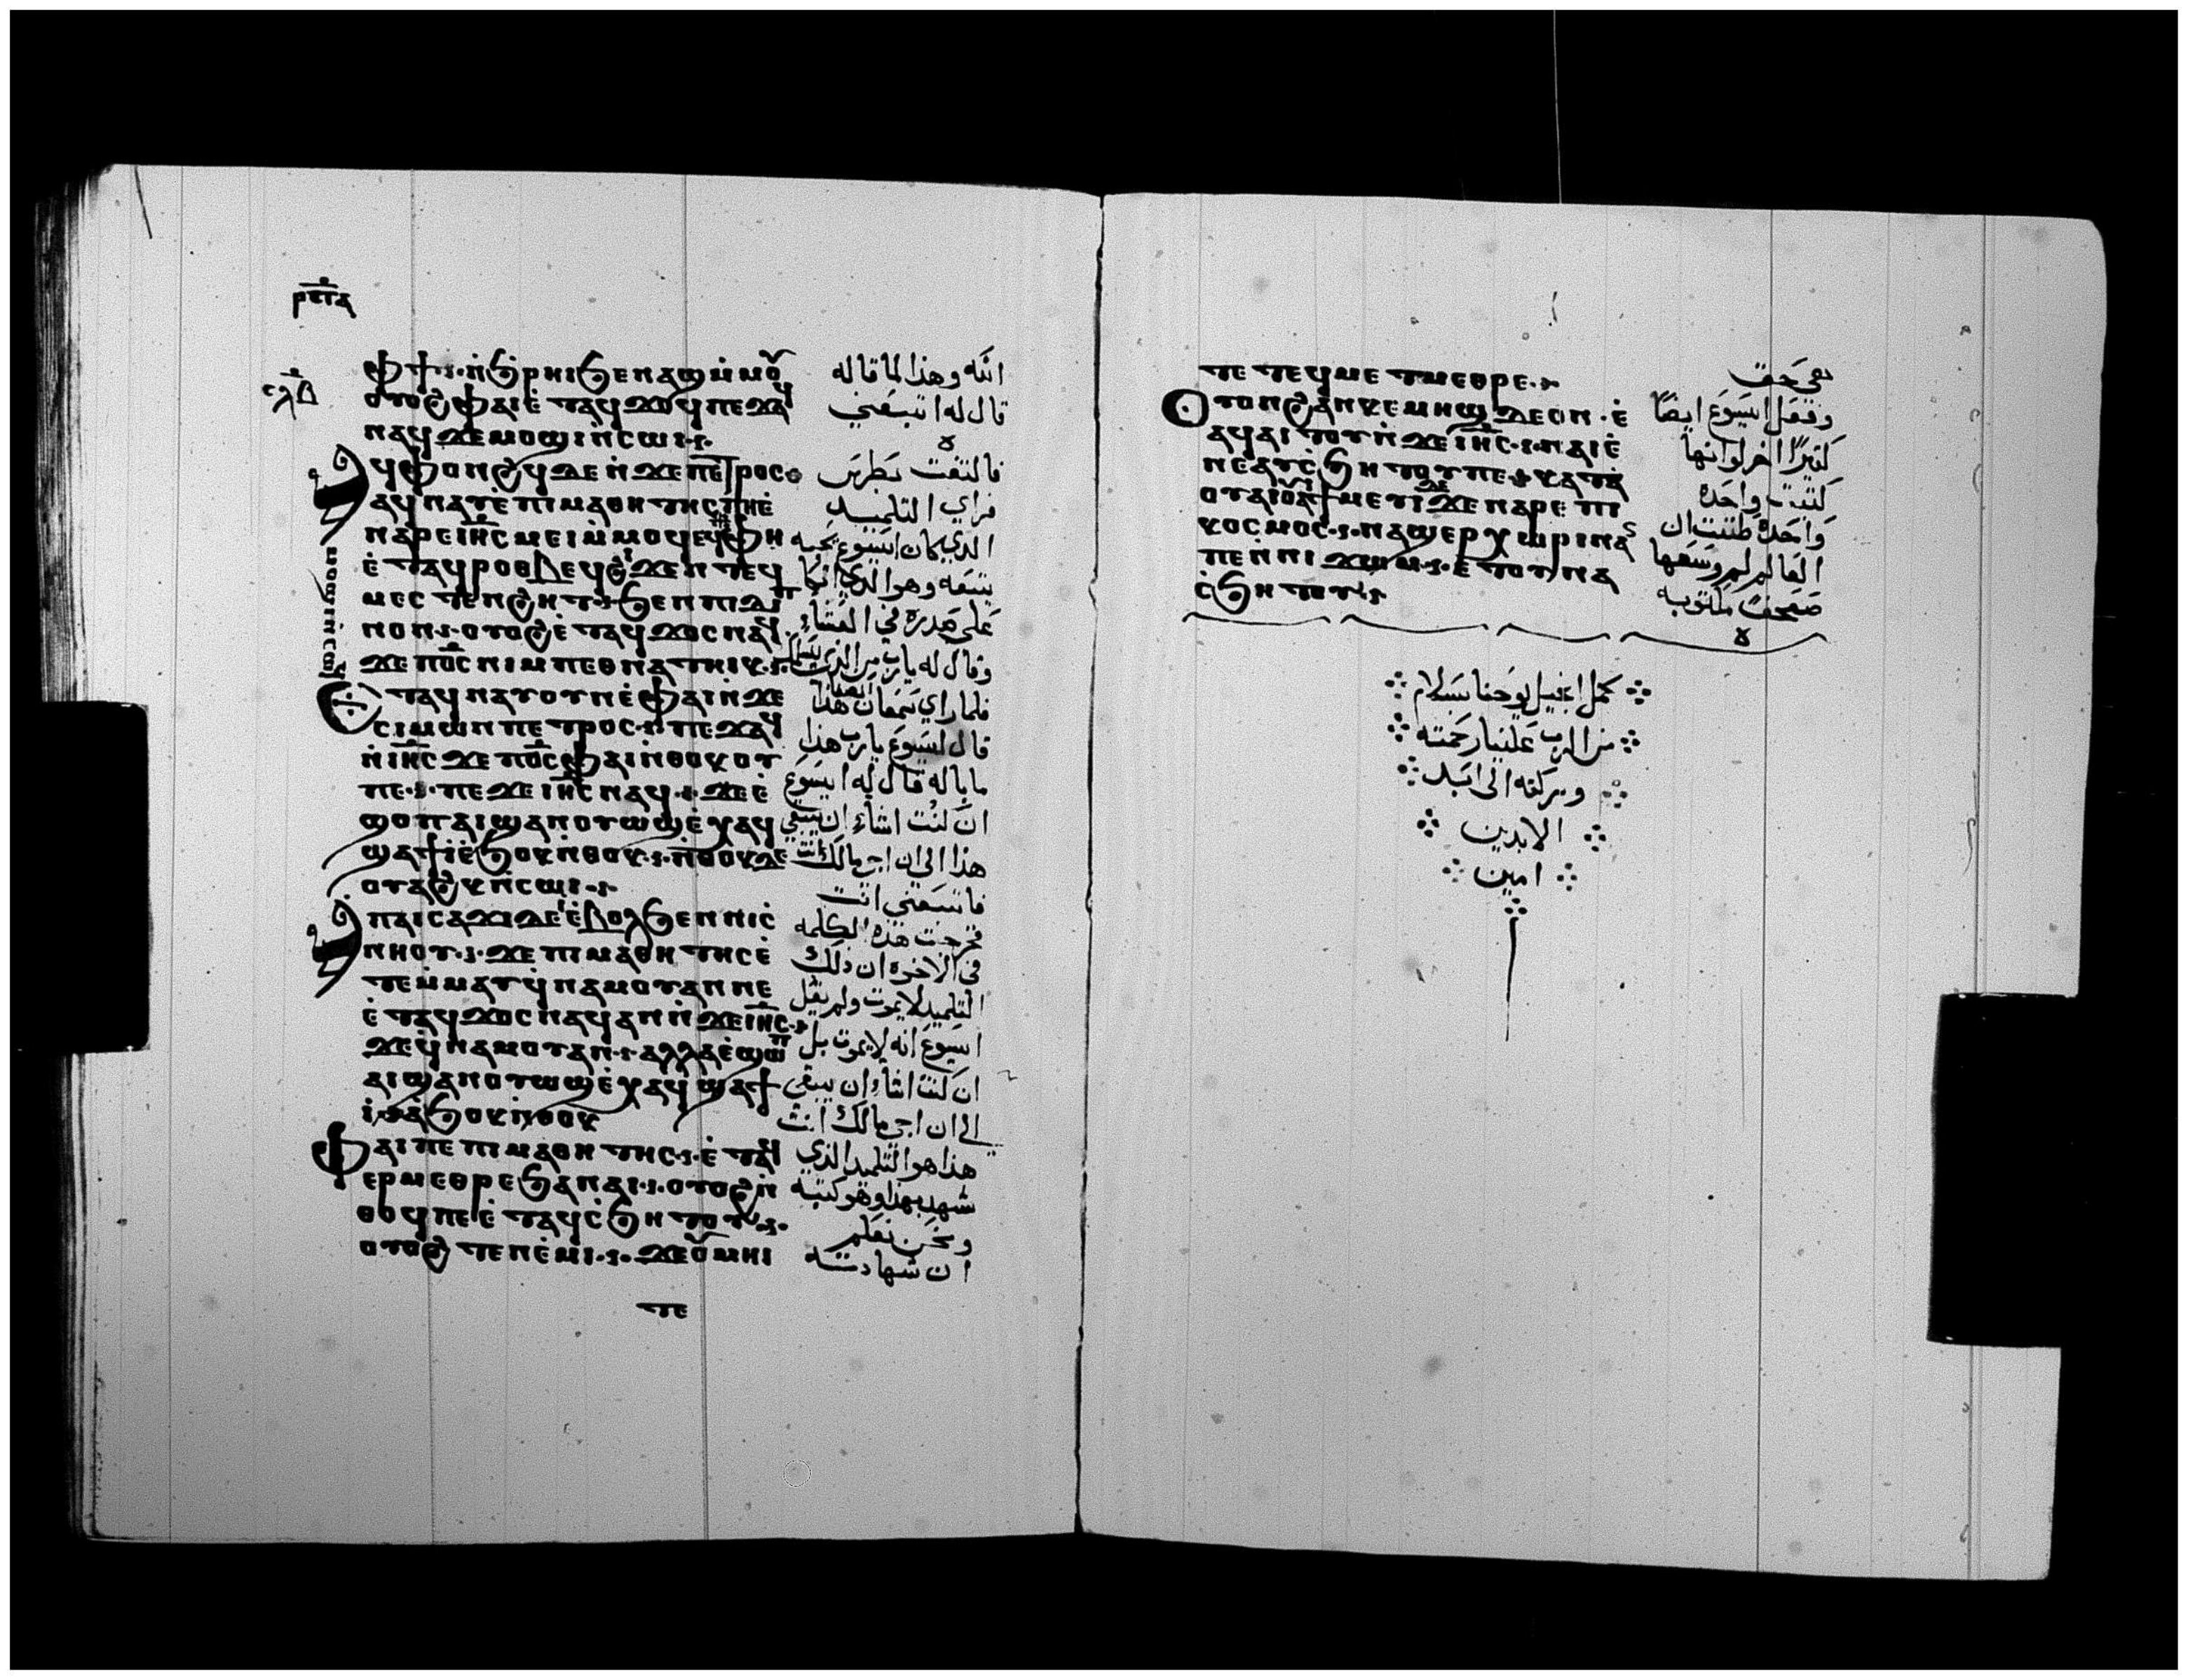 ⲣⲡⲁ
ⲥⲗⲃ
ⲫϯ ⲛ̀ϧⲣⲏⲓ ϧⲉⲛⲁϣ ⲙ̀ⲙⲟⲩ
ⲟⲩⲟϩ ⲫⲁⲓ ⲉ̀ⲧⲁϥϫⲟϥ ⲡⲉϫⲁϥ
ⲛⲁϥ ϫⲉ ⲙⲟϣⲓ ⲛ̀ⲥⲱⲓ
ⲁϥⲫⲟⲛϩϥ ⲇⲉ ⲛ̀ϫⲉ ⲡⲉⲧⲣⲟⲥ
ⲁϥⲛⲁⲩ ⲉ̀ⲡⲓⲙⲁⲑⲏⲧⲏⲥ ⲫⲏ ⲉ̀
ⲛⲁⲣⲉ ⲓⲏⲥ ⲙⲉⲓ ⲙ̀ⲙⲟϥ ⲉϥ
ⲙⲟϣⲓ ⲛ̀ⲥⲱϥ
ⲫⲏ
ⲉ̀ⲧⲁϥⲣⲟⲑⲃⲉϥ ϩⲓϫⲉⲛ ⲧⲉϥ
ⲙⲉⲥⲧⲉⲛϩⲏⲧ ϧⲉⲛ ⲡⲓⲇⲓⲡ
ⲛⲟⲛ ⲟⲩⲟϩ ⲉ̀ⲧⲁϥϫⲟⲥ ⲛⲁϥ
ϫⲉ ⲡⲟⲥ ⲛⲓⲙ ⲡⲉⲑⲛⲁⲧⲏⲓⲕ
ⲉⲧⲁϥⲛⲁⲩ ⲟⲩⲛ ⲉ̀ⲫⲁⲓ ⲛ̀ϫⲉ
ⲥⲓⲙⲱⲛ ⲡⲉⲧⲣⲟⲥ ⲡⲉϫⲁϥ
ⲛ̀ⲓⲏⲥ ϫⲉ ⲡⲟⲥ ⲫⲁⲓ ⲛ̀ⲑⲟϥ ⲟⲩ
ⲡⲉ ⲡⲉϫⲉ ⲓⲏⲥ ⲛⲁϥ ϫⲉ ⲉ̀
ϣⲟⲡ ⲁⲓϣⲁⲛⲟⲩⲱϣ ⲉ̀ⲭⲁϥ
ϣⲁϯⲓ̀ ⲉ̀ϧⲟⲕ ⲛ̀ⲑⲟⲕ ⲛ̀ⲑⲟⲕ ⲇⲉ
ⲟⲩⲁϩⲕ ⲛ̀ⲥⲱⲓ
ⲁⲡⲁⲓⲥⲁϫⲓ ⲇⲉ ⲓ̀ ⲉ̀ⲃⲟⲗ ϧⲉⲛ ⲛⲓⲥ̀
ⲛⲏⲟⲩ ϫⲉ ⲡⲓⲙⲁⲑⲏⲧⲏⲥ ⲉ̀
ⲧⲉⲙ̀ⲙⲁⲩ ϥ̀ⲛⲁⲙⲟⲩ ⲁⲛ ⲛⲉ
ⲉ̀ⲧⲁϥϫⲟⲥ ⲛⲁϥ ⲁⲛ ⲛ̀ϫⲉ ⲓⲏⲥ
ϫⲉ ϥ̀ⲛⲁⲙⲟⲩ ⲁⲛ ⲁⲗⲗⲁ ⲉ̀ϣⲱⲡ
ⲁⲓϣⲁⲛⲟⲩⲱϣ ⲉ̀ⲭⲁϥ ϣⲁϯ
ⲓ̀ ⲁϧⲟⲕ ⲛ̀ⲑⲟⲕ
ⲫⲁⲓ ⲡⲉ ⲡⲓⲙⲁⲑⲏⲧⲏⲥ ⲉ̀ⲧⲁϥ
ⲉⲣⲙⲉⲑⲣⲉ ϧⲁ ⲛⲁⲓ ⲟⲩⲟϩ ⲛ̀
ⲑⲟϥ ⲡⲉ ⲉ̀ⲧⲁϥⲥ̀ϧⲏⲧⲟⲩ
ⲟⲩⲟϩ ⲧⲉⲛⲉ̀ⲙⲓ ϫⲉ ⲟⲩⲙⲏⲓ
ⲧⲉ
انّه وهذا لما قاله
قال له اتبعني
فالتفت بطرس
فراي التلميد
الدي كان ايسوع يحبه
يتبعه وهو الدي اتكا
على صدره في العشاء
وقال له يارب من الذي يسلمك
فلما راي سمعان هذا
قال ليسوع يارب هذا
ما باله قال له ايسوع
ان كنت اشاء ان يبقي
هذا الى ان اجي مالك انت
فاتبعني انت
فخرجت هذه الكلمه
في الاخوه ان ذلك
التلميد لا يموت ولم يقل
ايسوع انه لا يموت بل
ان كنت اشاء ان يبقى
الى ان اجي مالك انت
هذا هو التلميد الذي
شهد بهذا وهو كتبه
ونحن نعلم
ان شهادته
ⲧⲉ ⲧⲉϥⲙⲉⲧⲙⲉⲑⲣⲉ
ⲟⲩⲟⲛ ϩⲁⲛⲕⲉⲙⲏϣ ⲇⲉ ⲟⲛ ⲉ̀
ⲁϥⲁⲓⲧⲟⲩ ⲛ̀ϫⲉ ⲓⲏⲥ ⲛⲁⲓ ⲉ̀
ⲛⲉⲁⲩⲥ̀ϧⲏⲧⲟⲩ ⲡⲉ ⲕⲁⲧⲁ
ⲟⲩⲁⲓ ⲟⲩⲁⲓ ϯⲙⲉⲩⲓ ϫⲉ ⲛⲁⲣⲉ ⲡⲓ
ⲕⲟⲥⲙⲟⲥ ⲛⲁϣⲉⲣⲭⲱⲣⲓⲛ ⲁⲛ
ⲡⲉ ⲛⲛⲓϫⲱⲙ ⲉ̀ⲧⲟⲩⲛⲁ
ⲥ̀ϧⲏⲧⲟⲩ
هي حق
وفعل ايسوع ايضًا
كثيرًا اخر لو انها
كتبت واحده
واحده ظننت ان
العالم لم وسعها
صحفًا مكتوبه
كمل انجيل يوحنا بسلام
من الرب علينا رحمته
وبركته الى ابد
الابدين
امين